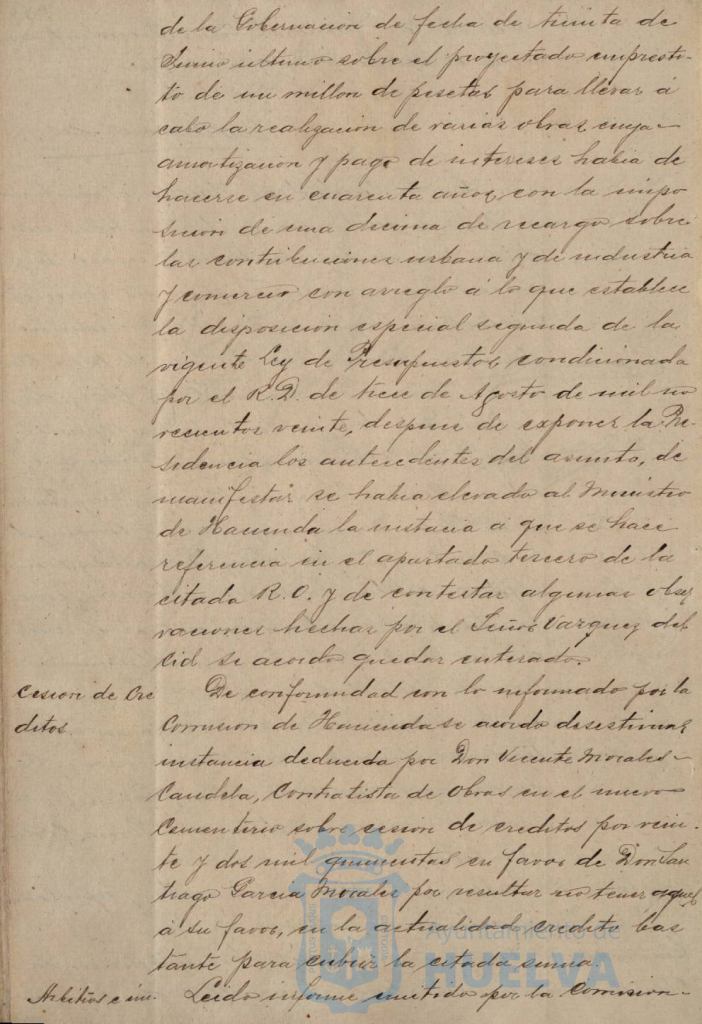 de la Gobernacion de fecha de treinta de
Junio ultimo sobre el proyectado empresti-
to de un millon de pesetas para llevar á
cabo la realizacion de varias obras cuya
amortizacion y pago de intereses habia de
hacerse en cuarenta años, con la impo
sicion de una decima de recargo sobre
las contribuciones urbana y de industria
y comercio con arreglo á lo que establece
la disposicion especial segunda de la
vigente Ley de Presupuestos, condicionada
por el R.D. de trece de Agosto de mil no
vecientos veinte, despues de exponer la Pre-
sidencia los antecedentes del asunto, de
manifestar se habia elevado al Ministro
de Hacienda la instacia a que se hace
referencia en el apartado tercero de la
citada R.O. y de contestar algunas obser
vaciones hechas por el Señor Vazquez del
Cid se acordo quedar enterado.
Cesion de Cre
ditos.
De conformidad con lo informado por la
Comision de Hacienda se acordo desestimar
instancia deducida por Don Vicente Morales
Candela, Contratista de Obras en el nuevo
Cementerio sobre cesion de creditos por vein-
te y dos mil quinientas en favor de Don San
tiago Garcia Morales por resultar no tener aquel
á su favor, en la actualidad credito bas
tante para cubrir la citada suma.
Arbitrios e im.
Leido informe emitido por la Comision
Ayuntamiento de
HUELVA